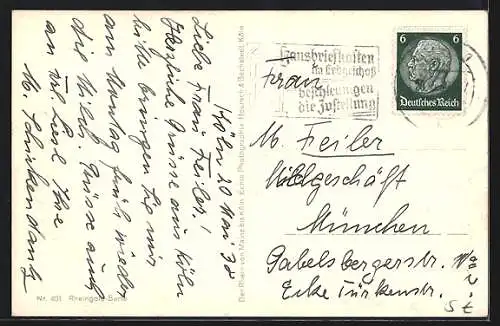 Köln 20 Mai 38
Liebe Frau Feiler!
Herzliche Grüße aus Köln
bitte bringen Sie mir
am Montag früh wieder
die Milch. Grüße auch
an Ihre
M.
Der Rhein von Mainz bis Köln. Echte Photographie Hoursch & Bechstedt, Köln
Nr. 401 Rheingold-Serie
Hausbriefkasten
im Erdgeschoß
beschleunigen
die Zustellung
6 6
Deutsches Reich
Frau
M. Feiler
Milchgeschäft
München
Gabelsbergerstr.
Ecke Türkenstr.